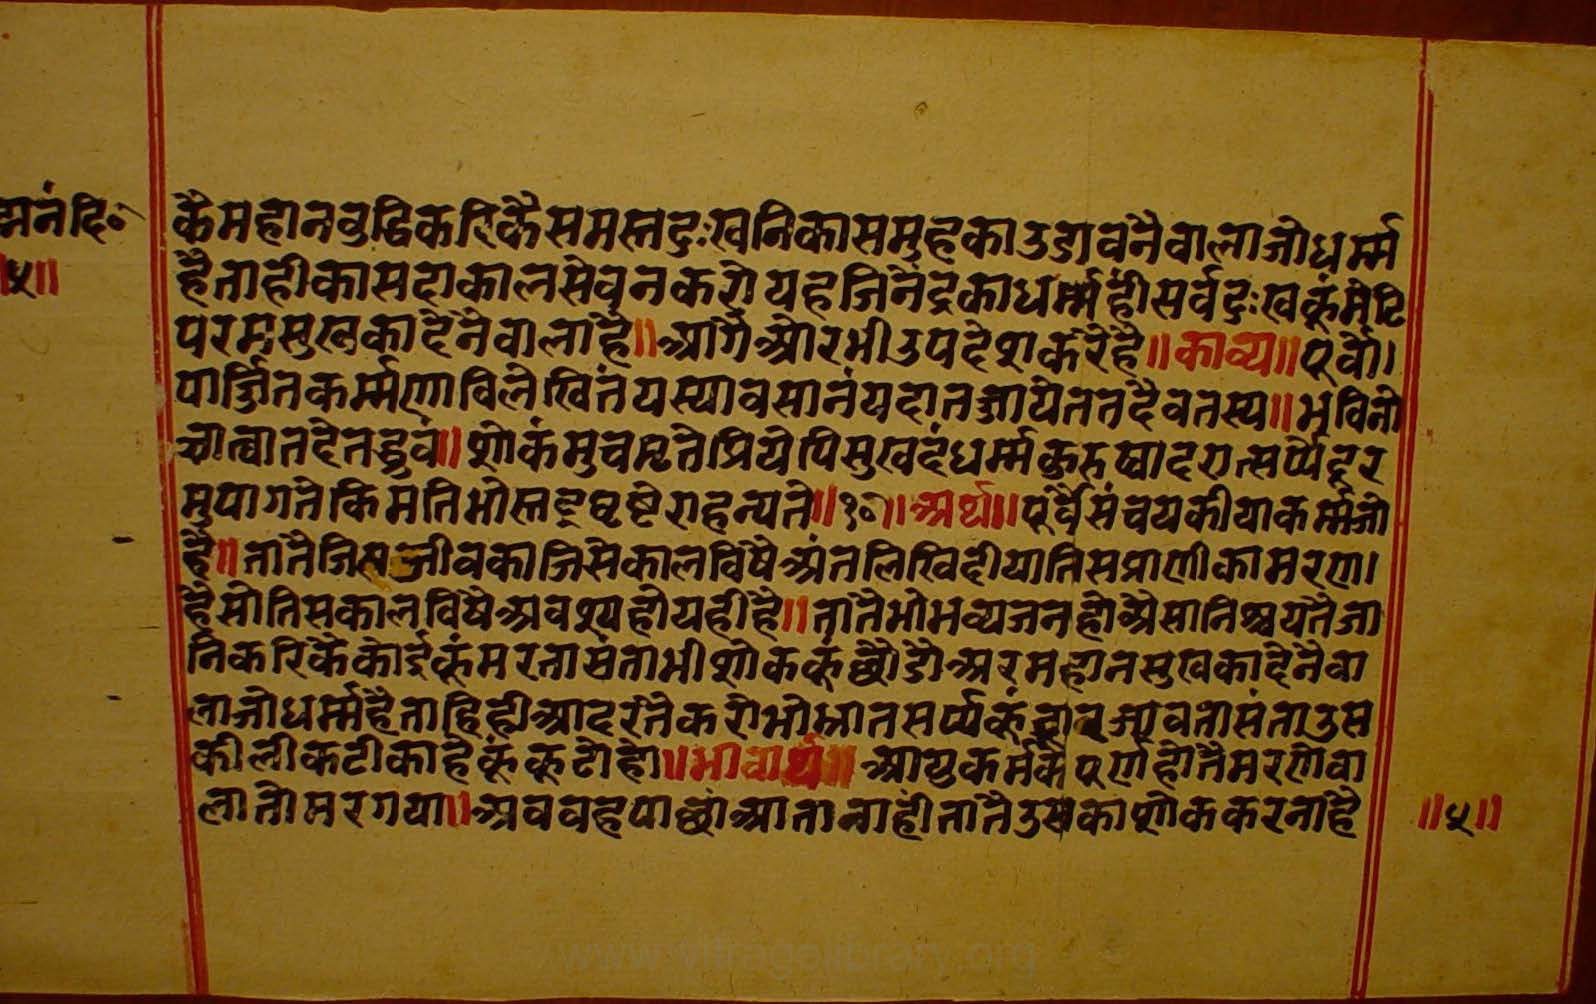 द्मनंदि॰
॥५॥
कै महान बुद्धि करिकै समस्त दुःखनिका समुह का उडावनै वाला जो धर्म्म
है ताही का सदा काल सेवन करो यह जिनेंद्र का धर्म्म ही सर्व दुःखकूं मेटि
परम सुख का देनै वाला है॥ आगै ओर भी उपदेश करै है॥ काव्य॥ पूर्वो।
पार्जितकर्म्मणा विलेखितं यस्यावसानं यदा तज्जायेत तदैव तस्य॥ भविनो
ज्ञात्वा तदेतद्ध्रुवं॥ शोकं मुच मृते प्रियेपि सुखदं धर्म्म कुरुष्वादरात्सर्प्पे दूर
मुपागते किमति भोस्तद्घृष्टिराहन्यते॥१०॥ अर्थ॥ पूर्वै संचय कीया कर्म्म जो
है॥ तातै जिस जीव का जिस काल विषै अंत लिखि दीया तिस प्राणी का मरण।
है सो तिस काल विषै अवश्य होय ही है॥ तातै भो भव्यजन हो अैसा निश्चयतै जा
निकरिकै कोई कूं मरता संता भी शोक कूं छौडो अर महान सुख का देनै वा
ला जो धर्म्म है ताहि ही आदरतै करो भो भ्रात सर्प्प कूं जावता संता उस
की लीकटी काहे कूं कूटो हो॥ भावार्थ॥ आयु कर्म कै पूर्ण होतै मरणे वा
ला तो मर गया॥ अब वह पाछा आता नाही तातै उसका शोक करना है
॥५॥